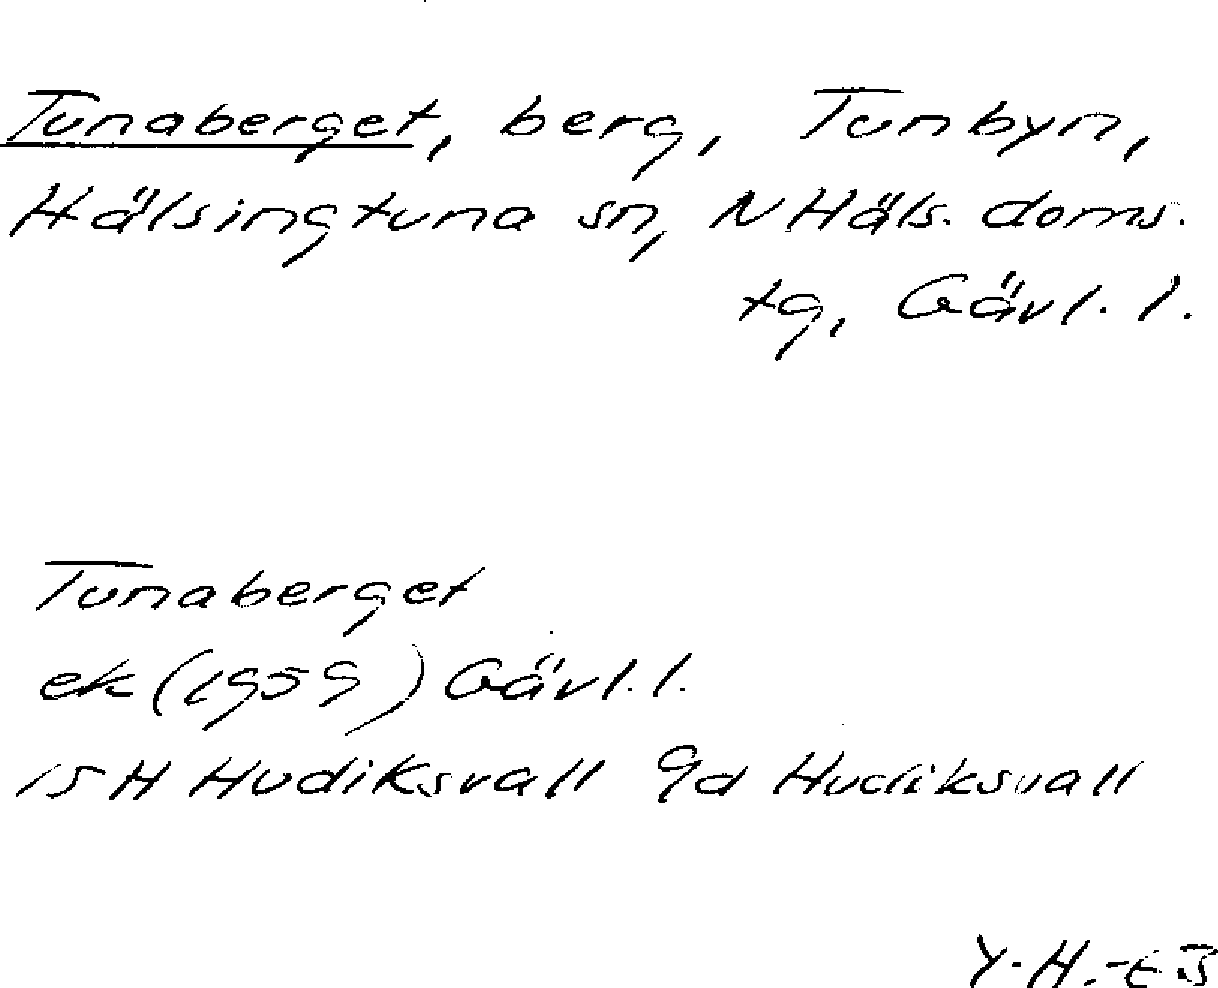 Tunaberget, berg, Tunbyn,
Hälsingtuna sn, N Häls. doms.
tg, Gävl. l.
Tunaberget
ek (1959) Gävl. l.
15 H Hudiksvall 9d Hudiksvall
Y.H.-EB